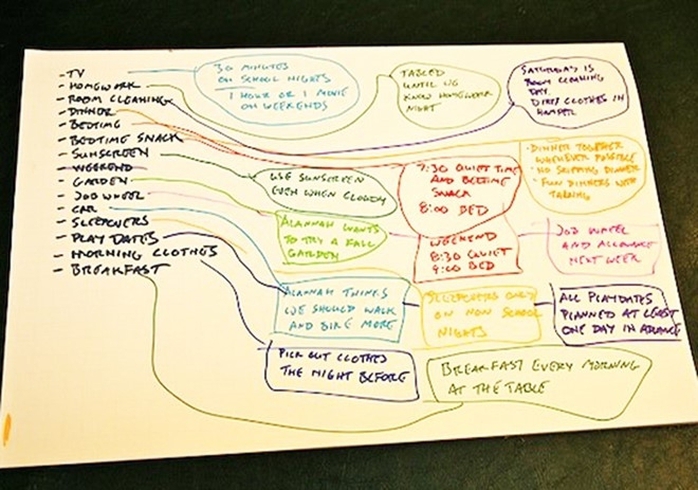 - TV
- HOMEWORK
- ROOM CLEANING
- DINNER
- BEDTIME
- BEDTIME SNACK
- SUNSCREEN
- WEEKEND
- GARDEN
- JOB WHEEL
- CAR
- SLEEPOVERS
- PLAY DATES
- MORNING CLOTHES
- BREAKFAST
30 MINUTES
ON SCHOOL NIGHTS
1 HOUR OR 1 MOVIE
ON WEEKENDS
TABLED
UNTIL WE
KNOW HOMEWORK
NIGHT
SATURDAY IS
ROOM CLEANING
DAY.
DIRTY CLOTHES IN
HAMPER
USE SUNSCREEN
EVEN WHEN CLOUDY
7:30 QUIET TIME
AND BEDTIME
SNACK
8:00 BED
- DINNER TOGETHER
WHENEVER POSSIBLE
- NO SKIPPING DINNER
- FUN DINNERS WITH
ALANNAH WANTS
TO TRY A FALL
GARDEN
WEEKEND
8:30 QUIET
9:00 BED
JOB WHEEL
AND ALLOWANCE
NEXT WEEK
ALANNAH THINKS
WE SHOULD WALK
AND BIKE MORE
SLEEPOVERS ONLY
ON NON SCHOOL
NIGHTS
ALL PLAYDATES
PLANNED AT LEAST
ONE DAY IN ADVANCE
PICK OUT CLOTHES
THE NIGHT BEFORE
BREAKFAST EVERY MORNING
AT THE TABLE